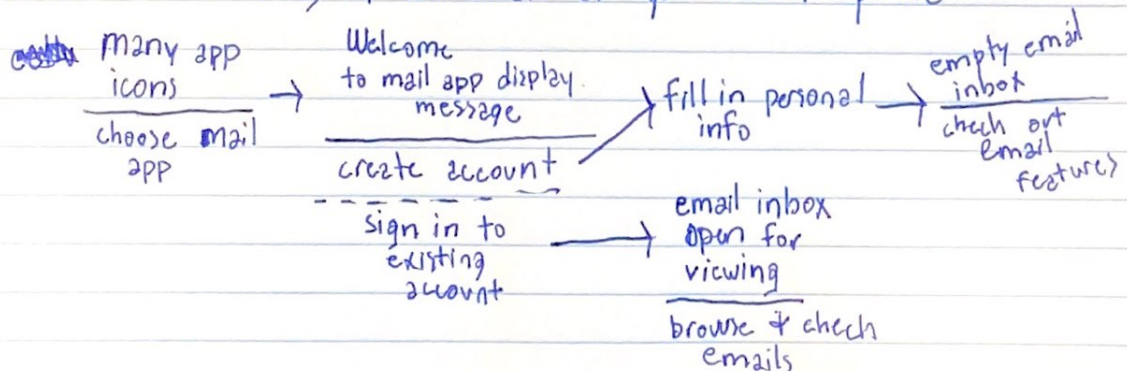 many app
icons
choose mail
app
Welcome
to mail app display
message
create account
sign in to
existing
account
fill in personal
info
empty email
inbox
chech out
email
features
email inbox
open for
viewing
browse & chech
emails